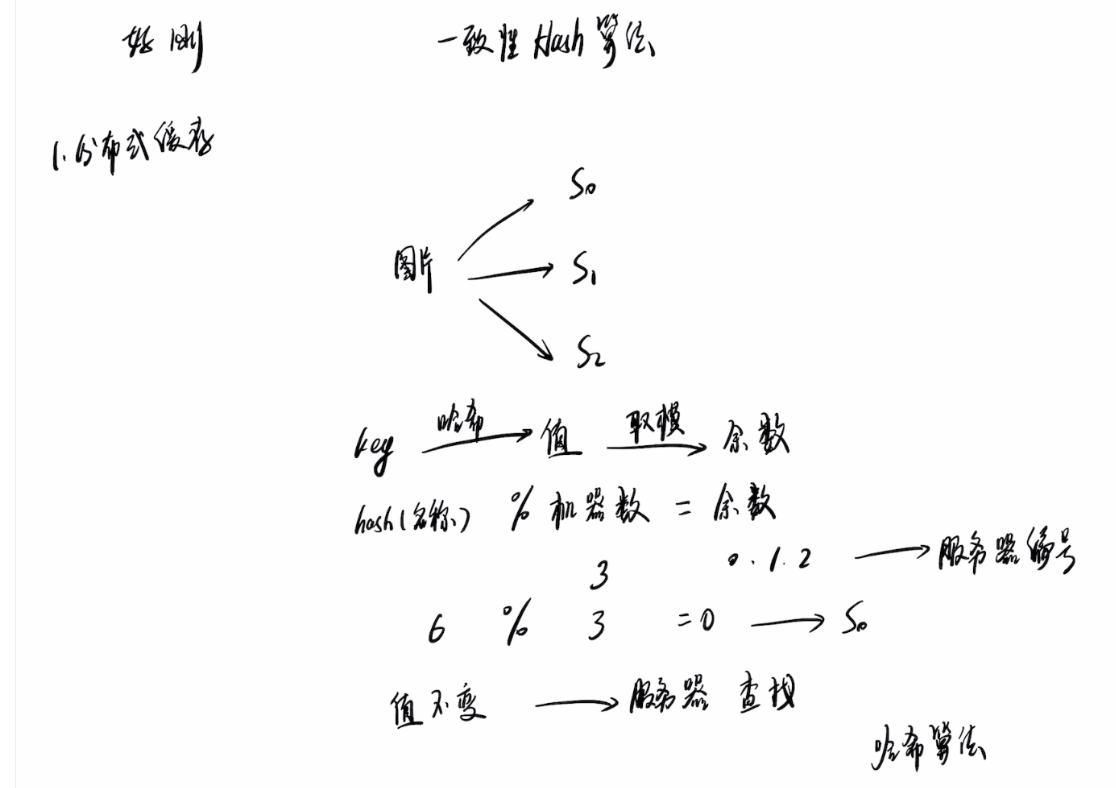 一致性Hash算法
1.分布式缓存
S0
图片
S1
S2
key 哈希 值 取模 余数
hash(名称) % 机器数 = 余数
3 0.1.2 服务器编号
6 % 3 =0 S0
值不变 服务器 查找
哈希算法